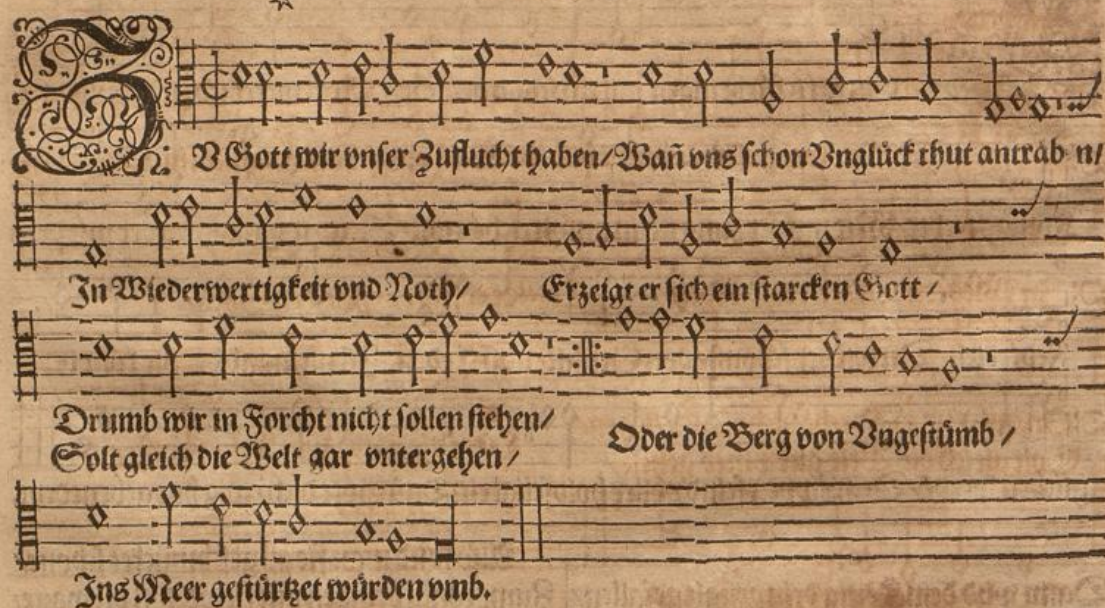 ZV Gott wir vnser Zuflucht haben/ Wañ vns schon Vnglück thut antrab n/
In Wiederwertigkeit vnd Noth/ Erzeigt er sich ein starcken Gott/
Drumb wir in Forcht nicht sollen stehen/
Solt gleich die Welt gar vntergehen/
Oder die Berg von Vngestümb/
Ins Meer gestürtzet würden vmb.